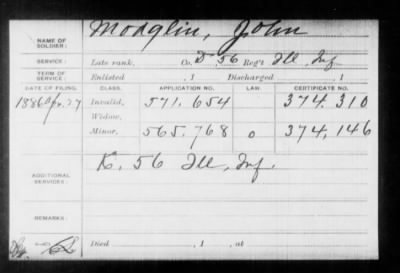 NAME OF SOLDIER: Modglin, John
SERVICE: Late rank, Co. D, 56 Reg't Ill, Inf.
TERM OF SERVICE: Enlisted , 1 Discharged , 1
DATE OF FILING. CLASS. APPLICATION NO. LAW. CERTIFICATE NO.
1886 Apr. 27 Invalid, 571,654 374,310
Widow,
Minor, 565,768 o 374,146
ADDITIONAL SERVICES: K. 56 Ill, Inf.
REMARKS:
Died , 1 , at